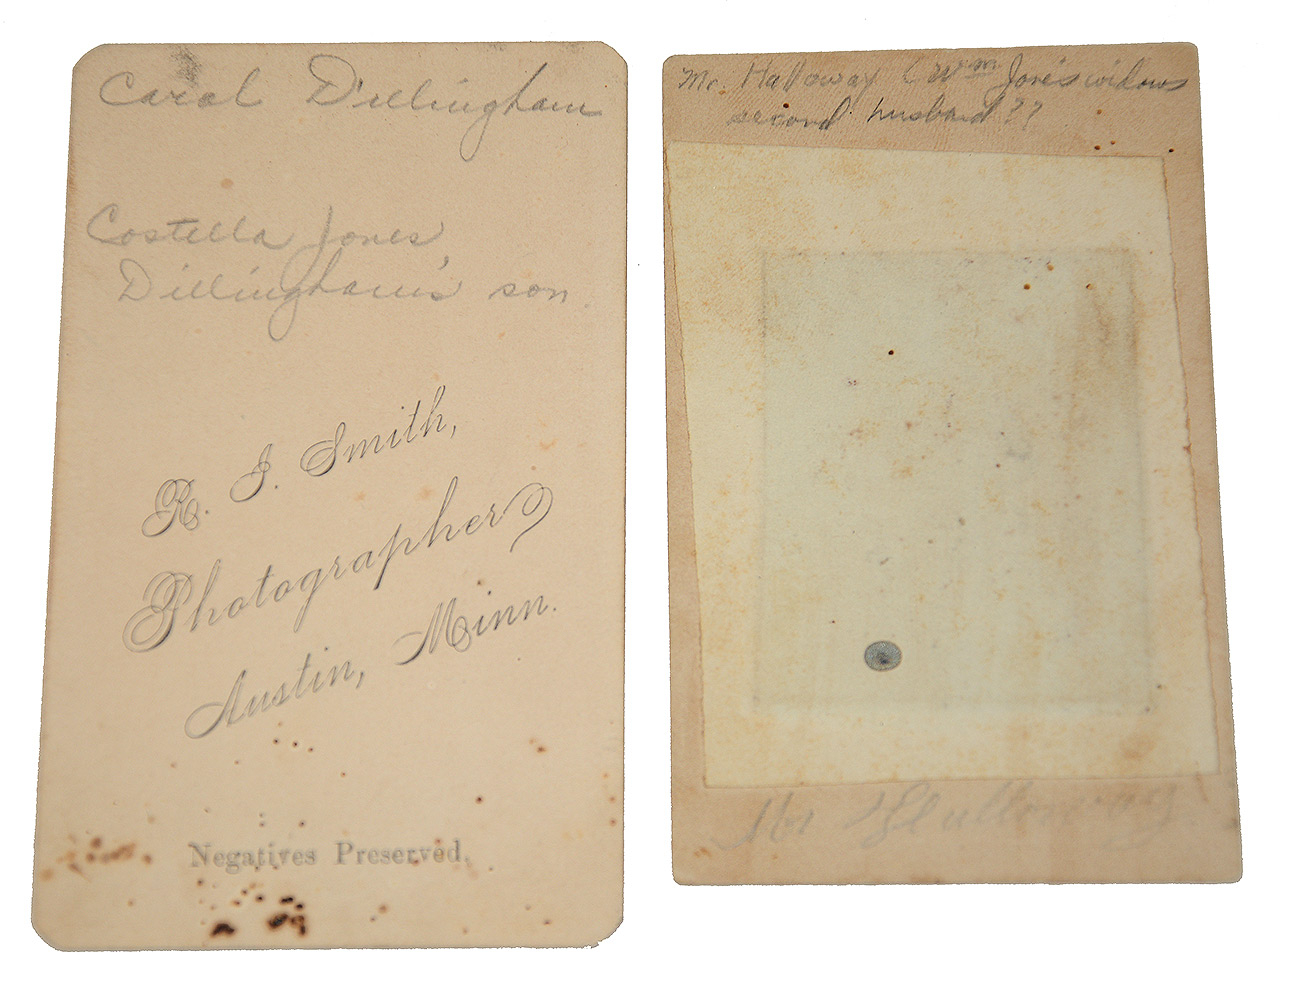 Carol Dillingham
Costella Jones
Dillingham's son.
R. J. Smith,
Photographer
Austin, Minn.
Negatives Preserved.
Mr. Halloway (Wm Jone's widows
second husband??
Mr Halloway